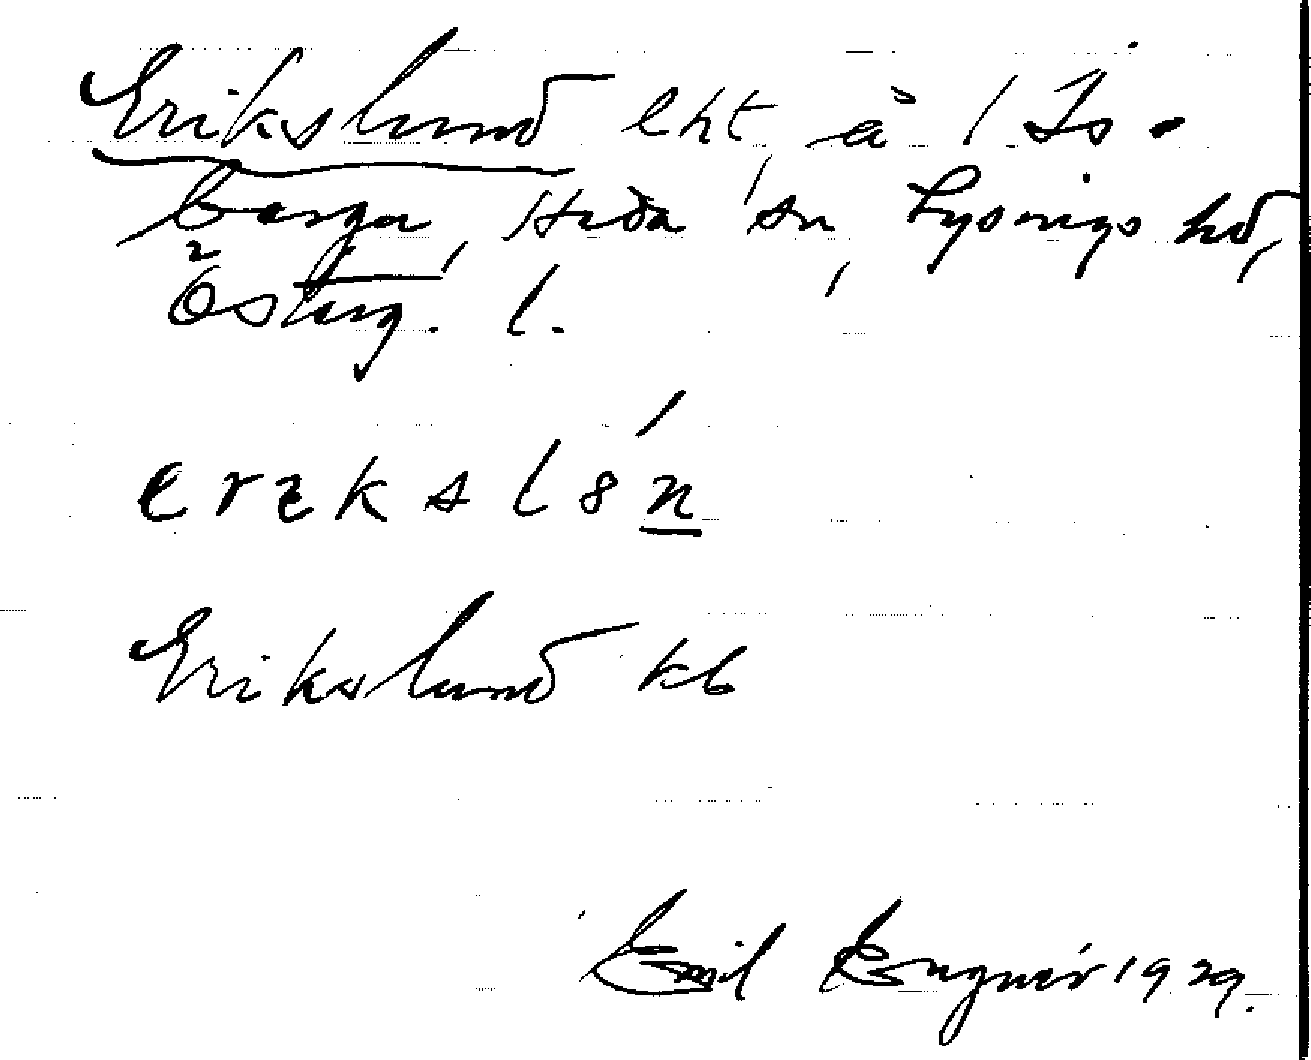 Erikslund lht, å 1 Is-
berga, Heda sn, Lysings hd,
Österg. l.
erekslsn
Erikslund kb
Emil 1929.